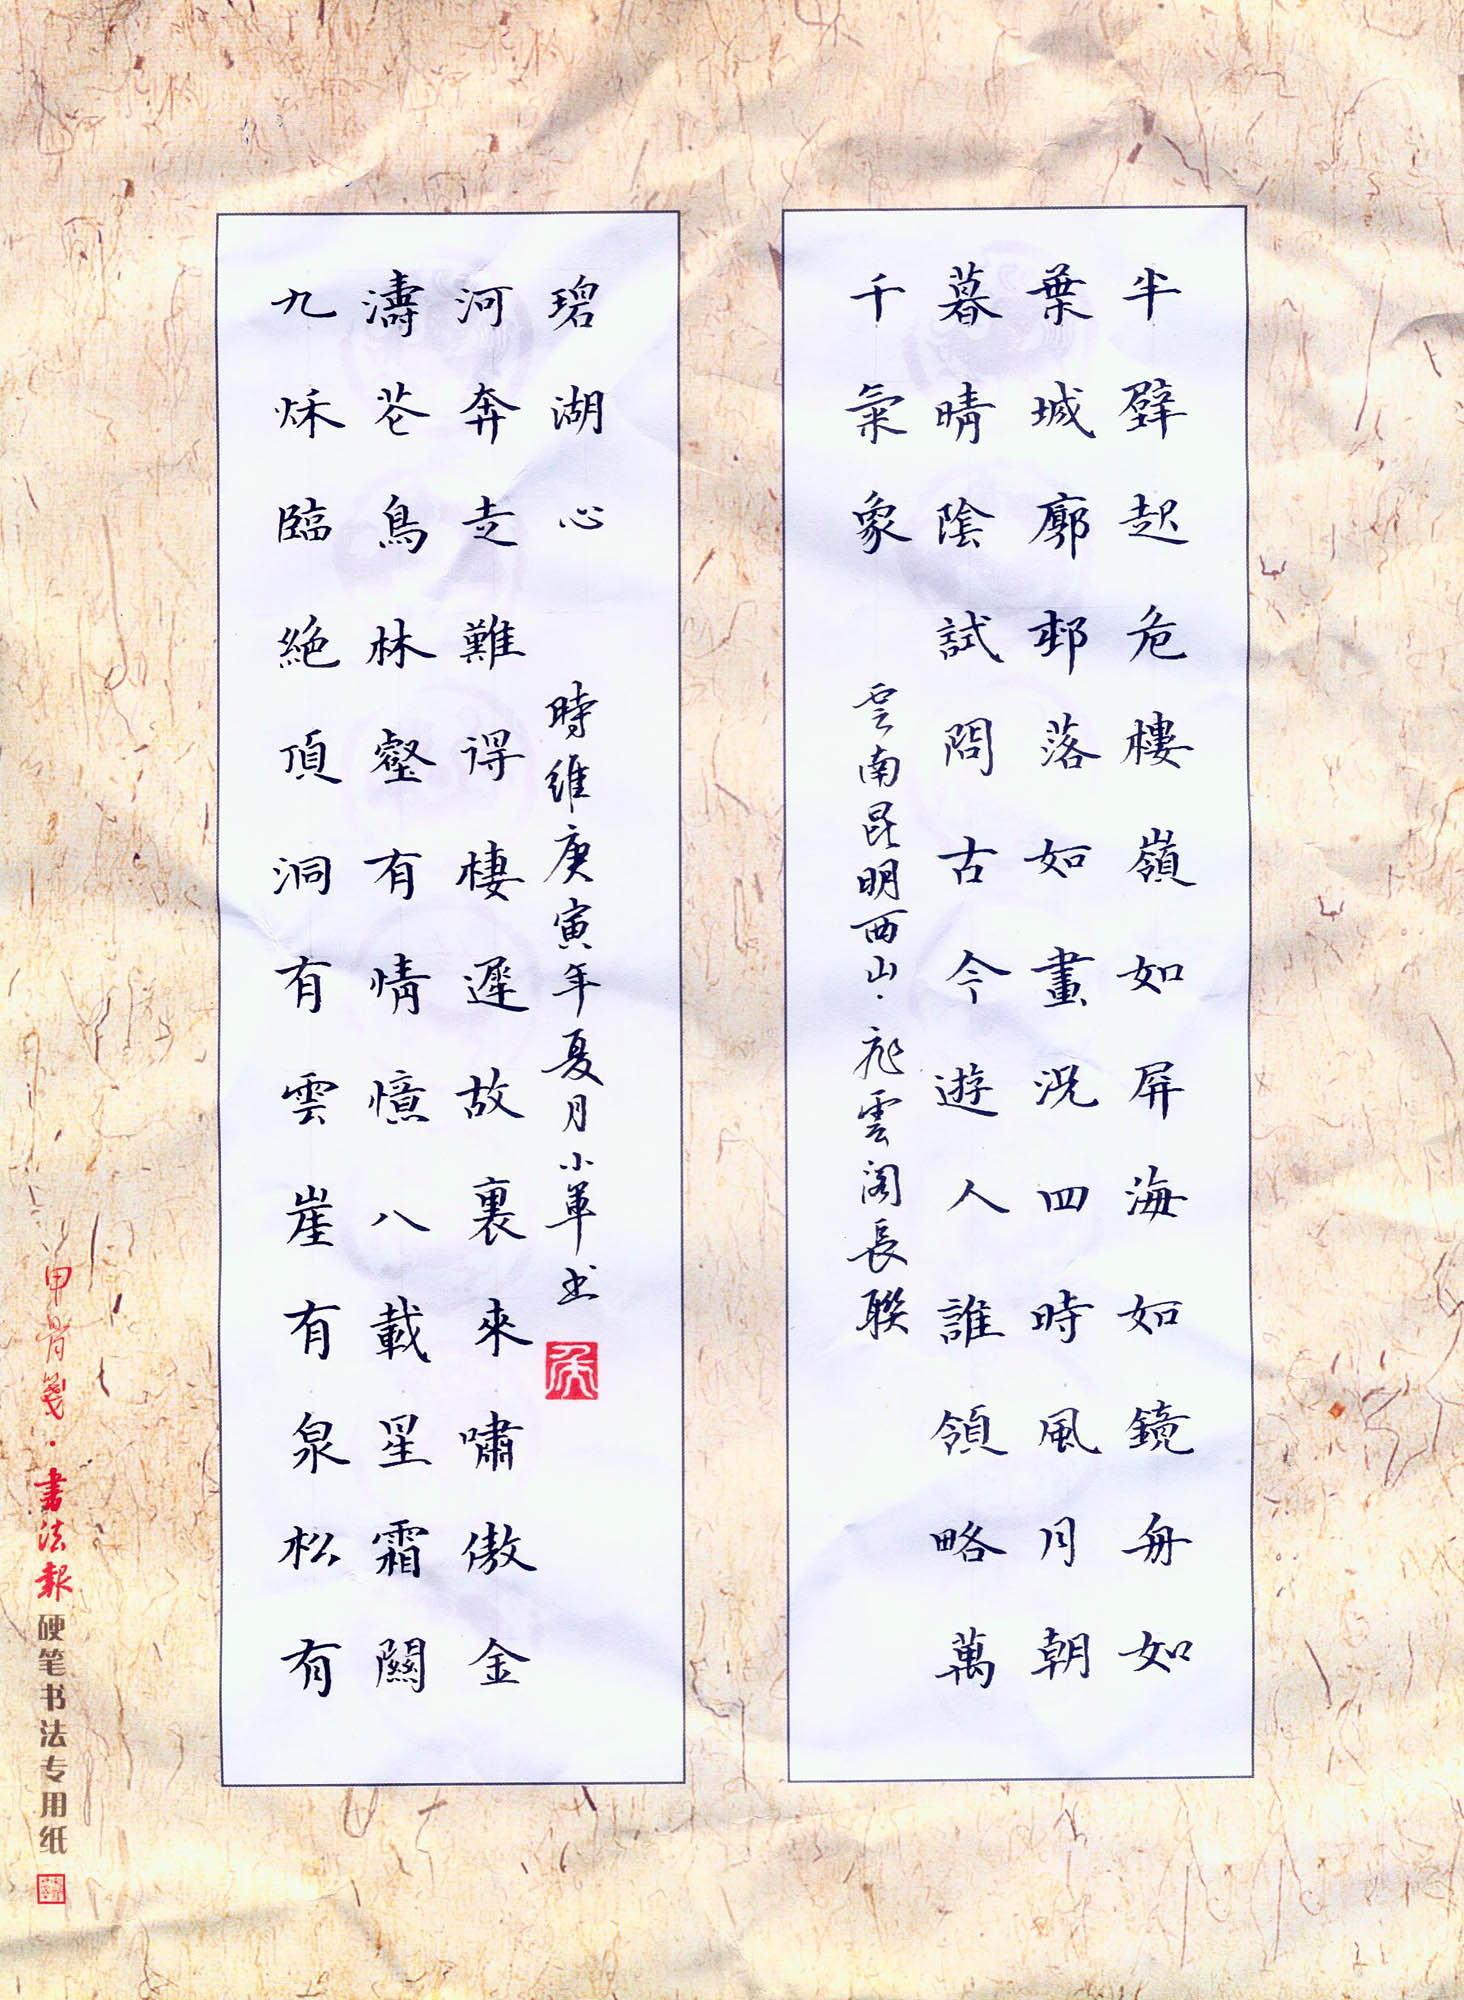 半壁起危樓嶺如屏海如鏡舟如
葉城廓邨落如畫況四時風月朝
暮晴陰試問古今遊人誰領略萬
千氣象
雲南昆明西山·飛雲閣長聯
九秌臨絕頂洞有雲崖有泉松有
濤花鳥林壑有情憶八載星霜關
河奔走難得棲遲故裏來嘯傲金
碧湖心
時維庚寅年夏月小軍书
甲骨箋·書法報硬笔书法专用纸